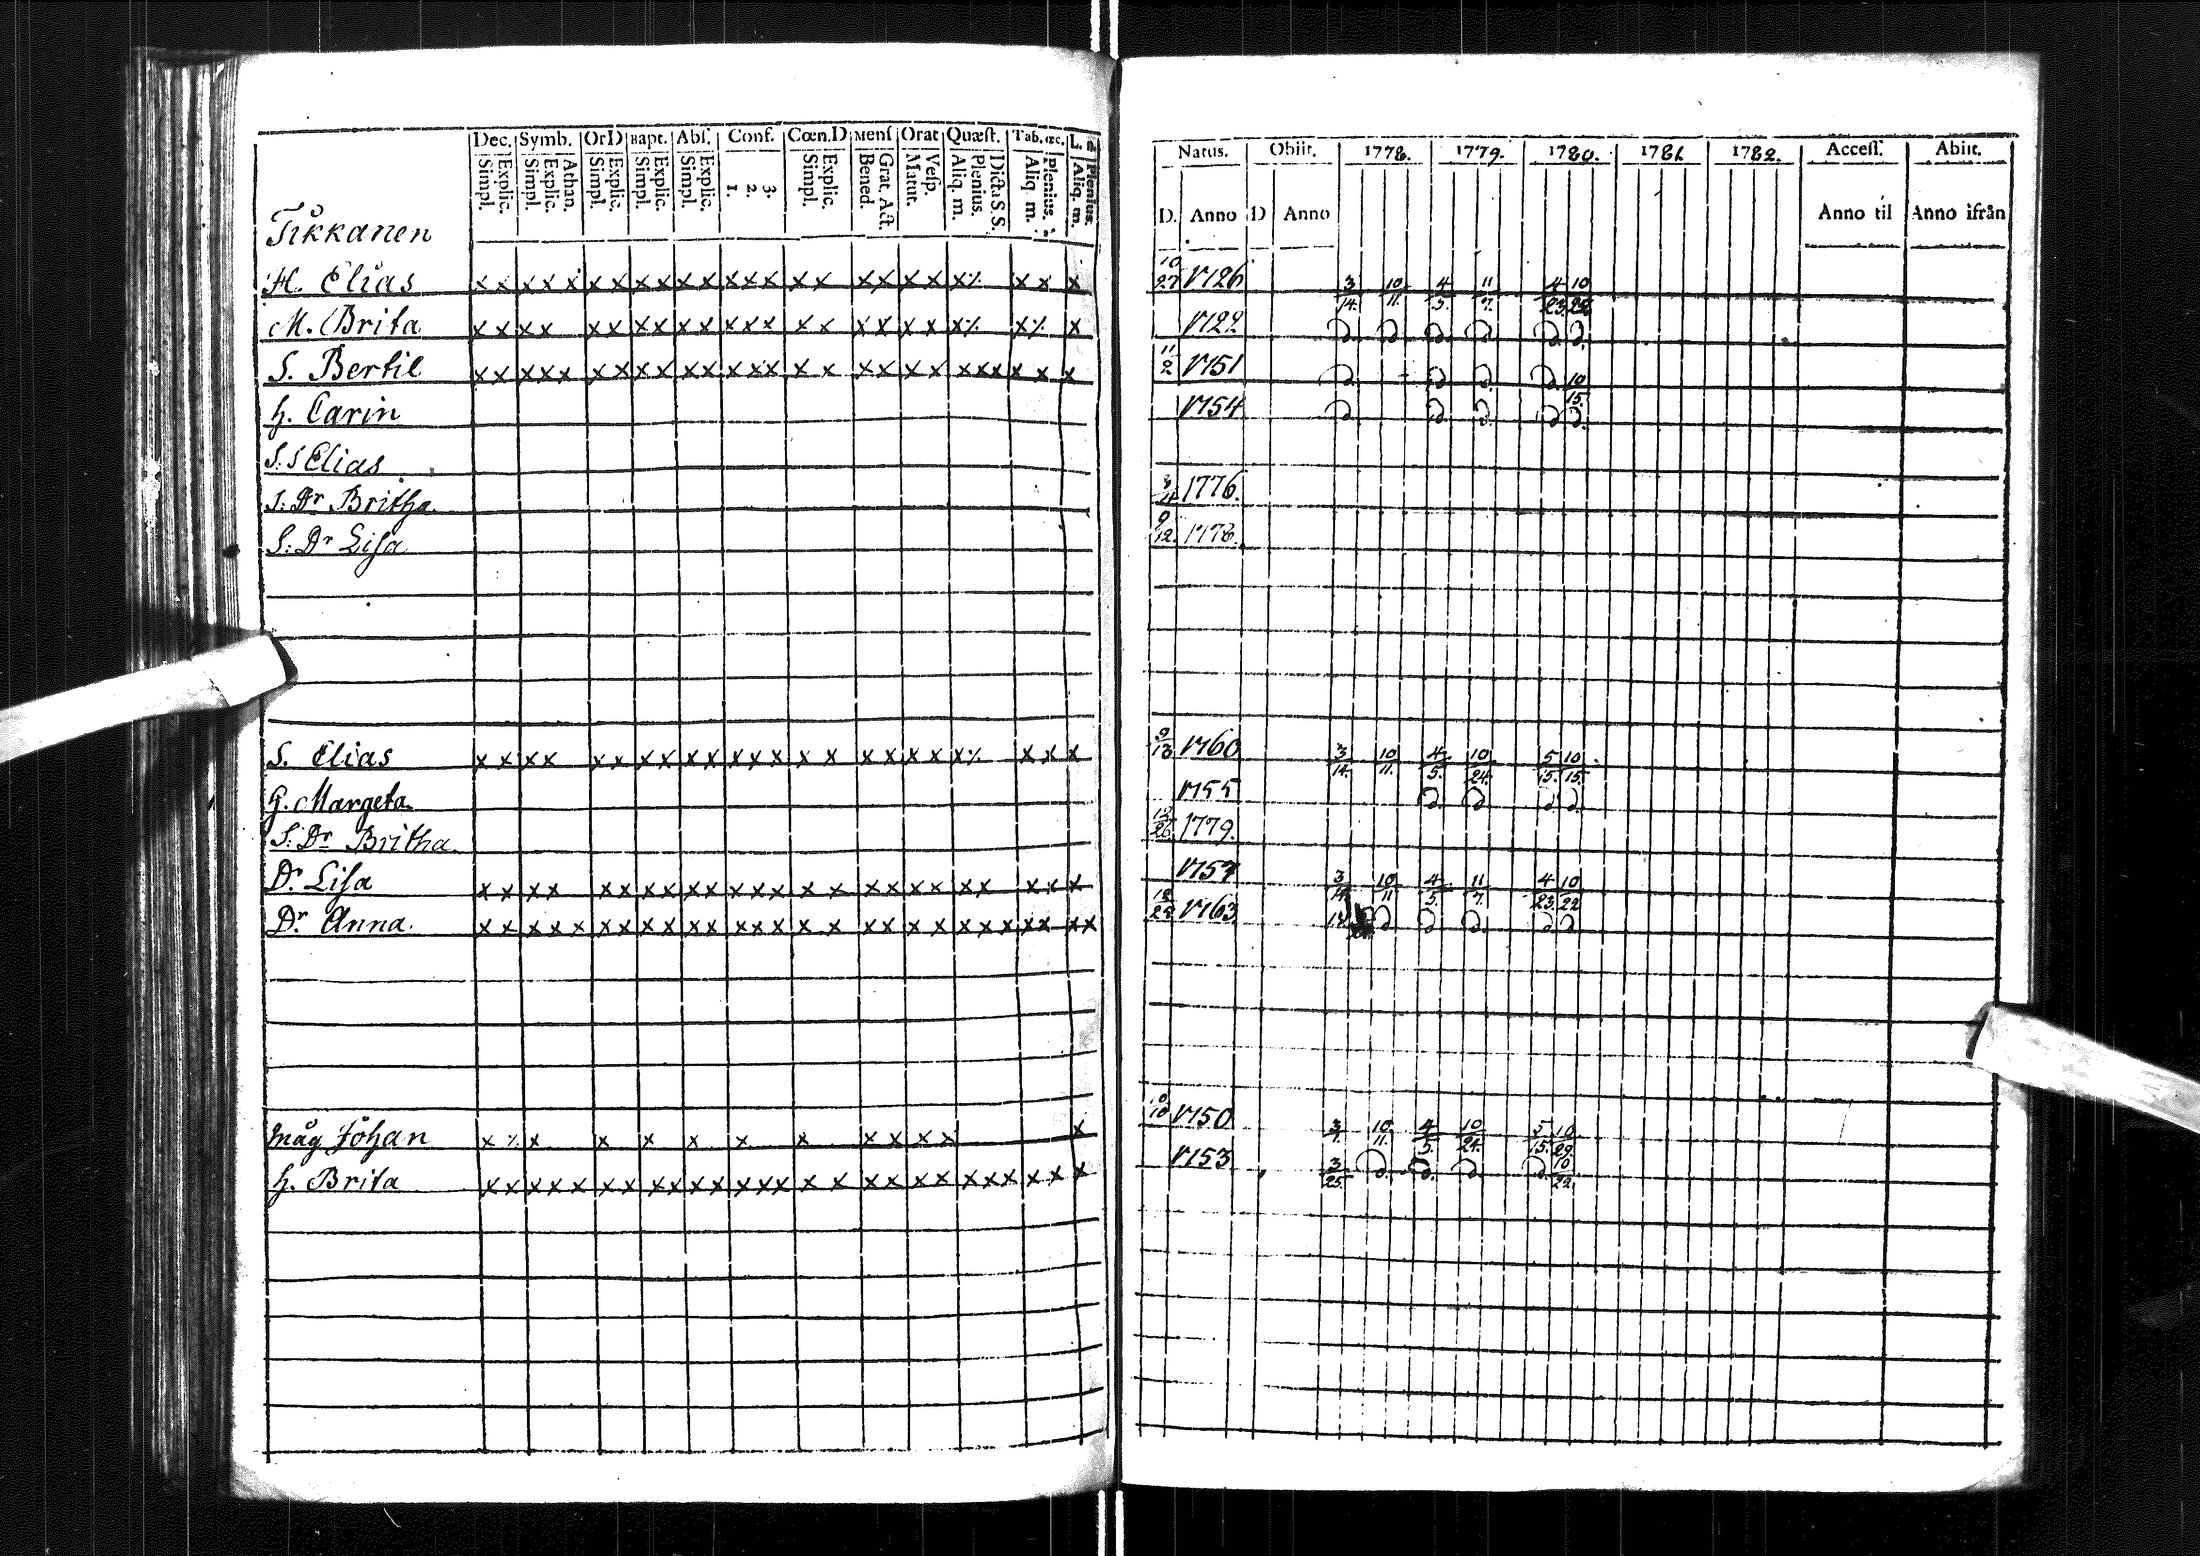 Dec. Symb. OrD Bapt. Abſ. Conf. Cœn.D Menſ Orat Quæſt. Tab. œc. L.
Simpl. Explic. Simpl. Explic. Athan. Simpl. Explic. Simpl. Explic. Simpl. Explic. 1. 2. 3. Simpl. Explic. Bened. Grat. Act. Matut. Veſp. Aliq. m. Plenius. Dict. S.S. Aliq. m. Plenius. Aliq. m. Plenius.
Tikkanen
H. Elias x x x x x x x x x x x x x x x x x x x x x ⁒ x x x
M. Brita x x x x x x x x x x x x x x x x x x x x ⁒ x ⁒ x
S. Bertil x x x x x x x x x x x x x x x x x x x x x x x x x x
h. Carin
S. S Elias
S: Dr Britha
S: Dr Liſa
S. Elias x x x x x x x x x x x x x x x x x x x x ⁒ x x x
h. Margeta
S: Dr Britha
Dr Liſa x x x x x x x x x x x x x x x x x x x x x x x x
Dr Anna. x x x x x x x x x x x x x x x x x x x x x x x x x x x
Måg Johan x ⁒ x x x x x x x x x x x
h. Brita x x x x x x x x x x x x x x x x x x x x x x x x x x
Natus. Obiit. 1778. 1779. 1780. 1781 1782. Acceſſ. Abiit.
D. Anno D Anno Anno til Anno ifrån
10/27 1726 3/14. 10/11. 4/5. 11/7. 4/23. 10/22
1722
11/2 1751 10/15.
1754
3/21 1776.
9/12. 1778.
9/13 1760 3/14. 10/11. 4/5. 10/24. 5/15. 10/15.
1755
12/26 1779.
1757 3/14 10/11 4/5. 11/7. 4/23. 10/22
12/22 1763
10/10 1750 3/1. 10/11. 4/5. 10/24. 5/15. 10/29
1753 3/25. 10/22.